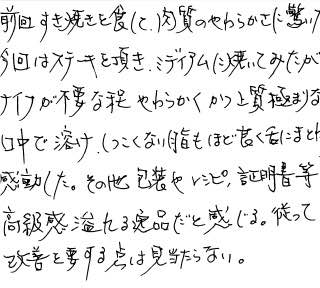 前回すき焼きを食して、肉質のやわらかさに驚いた
今回はステーキを頂き、ミディアムに焼いてみたが
ナイフが不要な程やわらかくかつ上質極まりな
口中で溶け、しつこくない脂もほど良く舌にまとわ
感動した。その他包装やレシピ、証明書等
高級感溢れる逸品だと感じる。従って
改善を要する点は見当たらない。